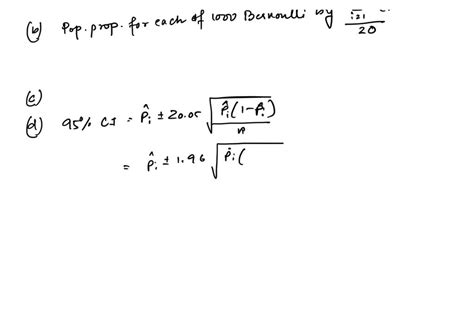 (b) Pop. prop. for each of 1000 Bernoulli by i=1 / 20
(c)
(d) 95% CI = p̂i ± Z0.05 √(p̂i(1-p̂i)/n)
= p̂i ± 1.96 √(p̂i(